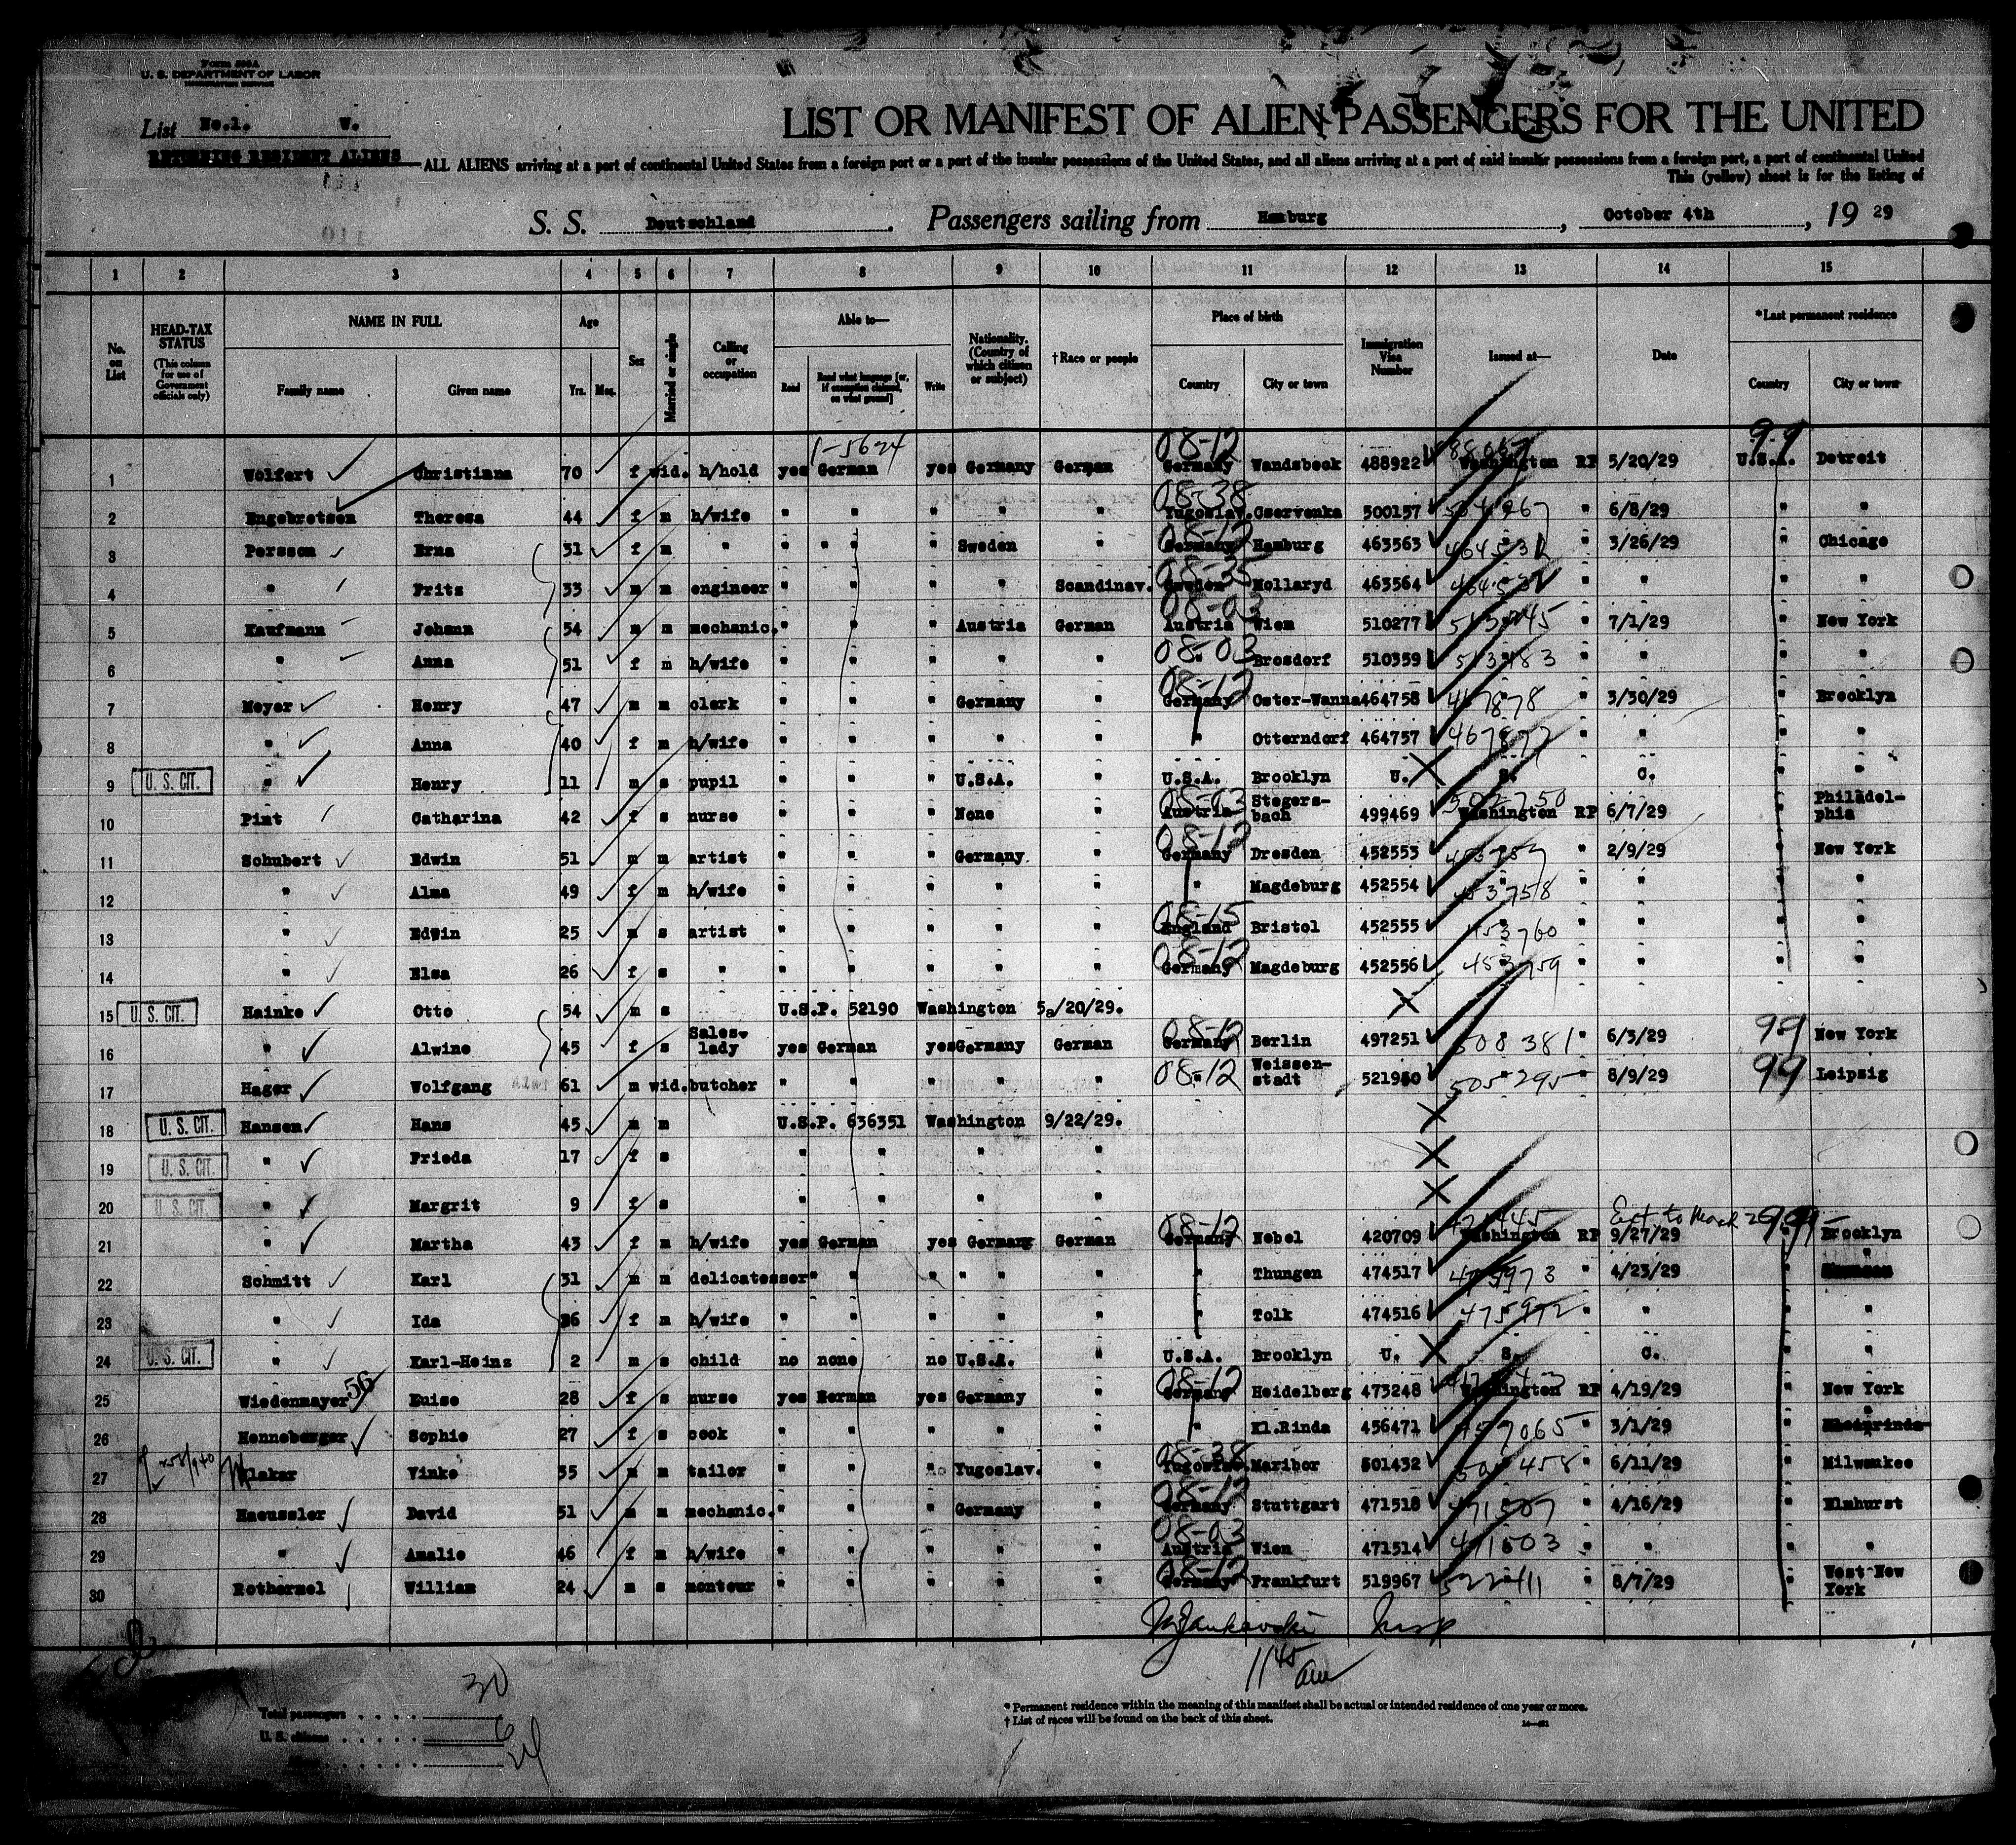 Form 500A
U. S. DEPARTMENT OF LABOR
IMMIGRATION SERVICE
List No.1. W.
LIST OR MANIFEST OF ALIEN PASSENGERS FOR THE UNITED
RETURNING RESIDENT ALIENS
ALL ALIENS arriving at a port of continental United States from a foreign port or a port of the insular possessions of the United States, and all aliens arriving at a port of said insular possessions from a foreign port, a port of continental United
This (yellow) sheet is for the listing of
S. S. Deutschland. Passengers sailing from Hamburg, October 4th, 19 29
1 2 3 4 5 6 7 8 9 10 11 12 13 14 15
No. on List HEAD-TAX STATUS (This column for use of Government officials only) NAME IN FULL Family name Given name Age Yrs. Mos. Sex Married or single Calling or occupation Able to— Read Read what language [or, if exemption claimed, on what ground] Write Nationality. (Country of which citizen or subject) †Race or people Place of birth Country City or town Immigration Visa Number Issued at— Date *Last permanent residence Country City or town
1-5624
1 Wolfert Christiana 70 f wid. h/hold yes German yes Germany German 08-12 Germany Wandsbeck 488922 Washington RP 5/20/29 99 U.S.A. Detroit
2 Engebretsen Theresa 44 f m h/wife " " " " " 08-38 Yugoslav. Cservenka 500157 " " 6/8/29 " "
3 Persson Erna 31 f m " " " " " Sweden " 08-12 Germany Hamburg 463563 " " 3/26/29 " Chicago
4 " Fritz 33 m m engineer " " " " Scandinav. 08-35 Sweden Hollaryd 463564 " " " " "
5 Kaufmann Johann 54 m m mechanic. " " " Austria German 08-03 Austria Wien 510277 " " 7/1/29 " New York
6 " Anna 51 f m h/wife " " " " " 08-03 " Brosdorf 510359 513483 " " " " "
7 Meyer Henry 47 m m clerk " " " Germany " 08-12 Germany Oster-Wanna 464758 467878 " " 3/30/29 " Brooklyn
8 " Anna 40 f m h/wife " " " " " " Otterndorf 464757 467877 " " " " "
9 U. S. CIT. " Henry 11 m s pupil " " " U.S.A. " U.S.A. Brooklyn U. S. C. " "
10 Pint Catharina 42 f s nurse " " " None " 08-03 Austria Stegers-bach 499469 502750 Washington RP 6/7/29 " Philadel-phia
11 Schubert Edwin 51 m m artist " " " Germany " 08-12 Germany Dresden 452553 " " 2/9/29 " New York
12 " Alma 49 f m h/wife " " " " " " Magdeburg 452554 453758 " " " " "
13 " Edwin 25 m s artist " " " " " 08-15 England Bristol 452555 453760 " " " " "
14 " Elsa 26 f s " " " " " " 08-12 Germany Magdeburg 452556 453759 " " " " "
15 U. S. CIT. Hainke Otto 54 m s U.S.P. 52190 Washington 5/20/29.
16 " Alwine 45 f s Sales-lady yes German yes Germany German 08-12 Germany Berlin 497251 508381 " 6/3/29 99 New York
17 Hager Wolfgang 61 m wid. butcher " " " " " 08-12 " Weissen-stadt 521950 505295 " 8/9/29 99 Leipsig
18 U. S. CIT. Hansen Hans 45 m m U.S.P. 636351 Washington 9/22/29.
19 U. S. CIT. " Frieda 17 f s " " " "
20 U. S. CIT. " Margrit 9 f s " " " "
Ext to March
21 " Martha 43 f m h/wife yes German yes Germany German 08-12 Germany Nebel 420709 Washington RP 9/27/29 Brooklyn
22 Schmitt Karl 31 m m delicatesser " " " " " " Thungen 474517 475973 " 4/23/29 " "
23 " Ida 26 f m h/wife " " " " " " Tolk 474516 475972 " " " "
24 U. S. CIT. " Karl-Heinz 2 m s child no none no U.S.A. " U.S.A. Brooklyn U. S. C. " "
25 Wiedenmayer 56 Euise 28 f s nurse yes German yes Germany " 08-12 Germany Heidelberg 473248 Washington RP 4/19/29 " New York
26 Henneberger Sophie 27 f s cook " " " " " " Kl.Rinda 456471 457065 " 3/1/29 "
27 Mlakar Vinko 35 m m tailor " " no Yugoslav. " 08-38 Yugoslav. Maribor 501432 " 6/11/29 " Milwaukee
28 Haeussler David 51 m m mechanic. " " " Germany " 08-12 Germany Stuttgart 471518 471507 " 4/16/29 " Elmhurst
29 " Amalie 46 f m h/wife " " " " " 08-03 Austria Wien 471514 471503 " " " "
30 Rothermel William 24 m s monteur " " " " " 08-12 Germany Frankfurt 519967 522411 " 8/7/29 " West New York
11 45 am
Total passengers 30
U. S. citizens 6
24
* Permanent residence within the meaning of this manifest shall be actual or intended residence of one year or more.
† List of races will be found on the back of this sheet.